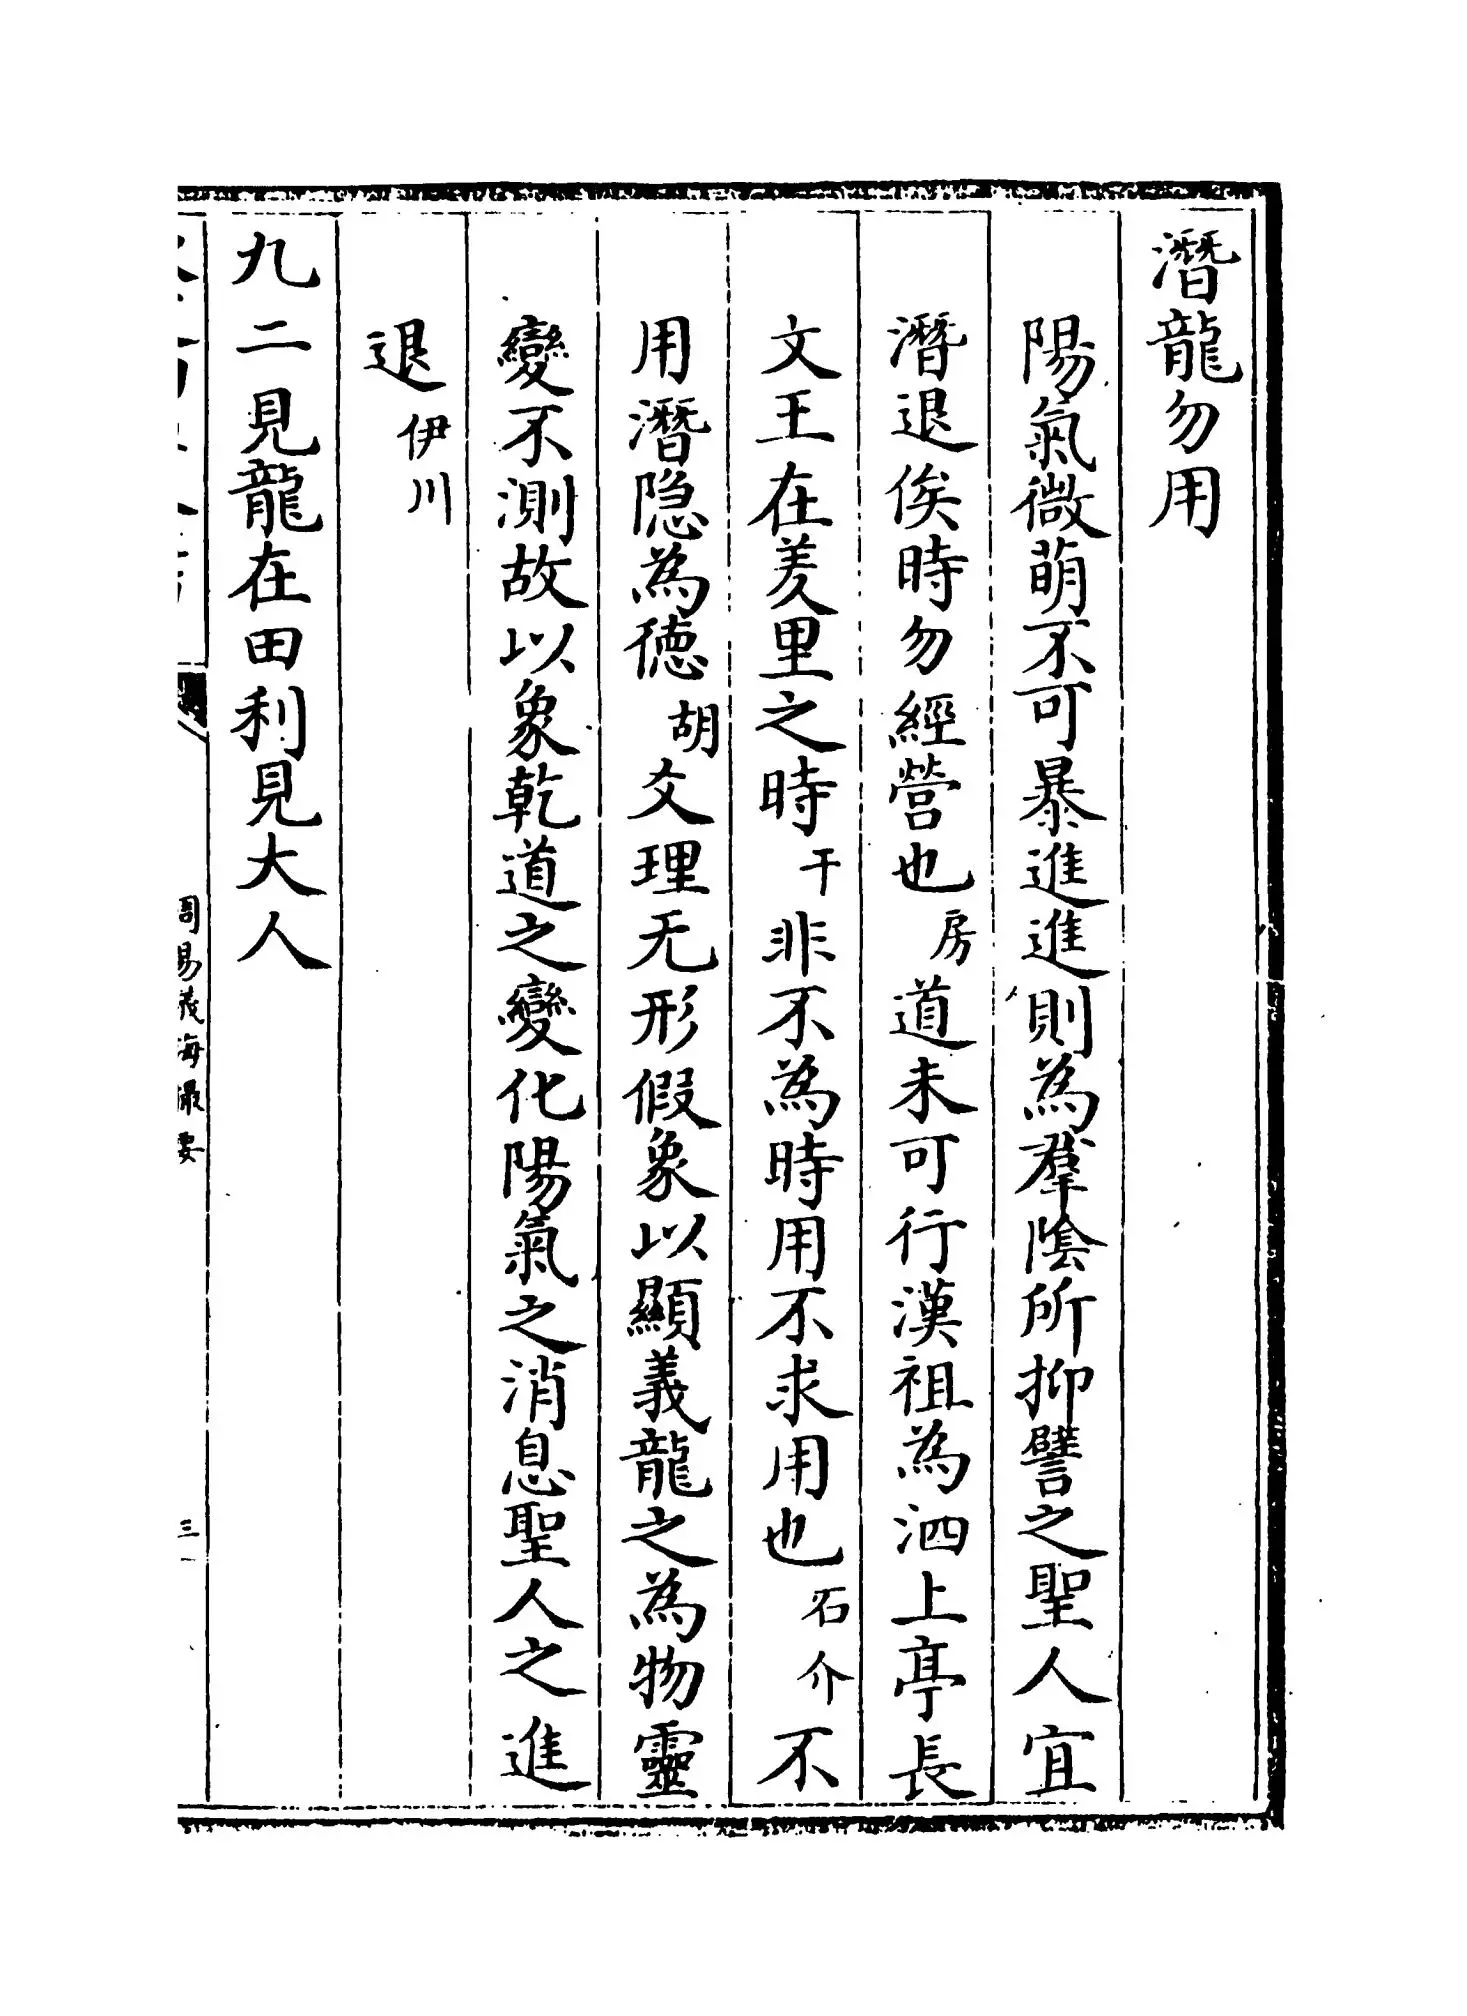 潛龍勿用
陽氣微萌不可暴進進則為羣陰所抑譬之聖人宜
潛退俟時勿經營也房道未可行漢祖為泗上亭長
文王在羑里之時干非不為時用不求用也石介不
用潛隐為德胡爻理无形假象以顯義龍之為物靈
變不測故以象乾道之變化陽氣之消息聖人之進
退伊川
九二見龍在田利見大人
周易義海撮要
三